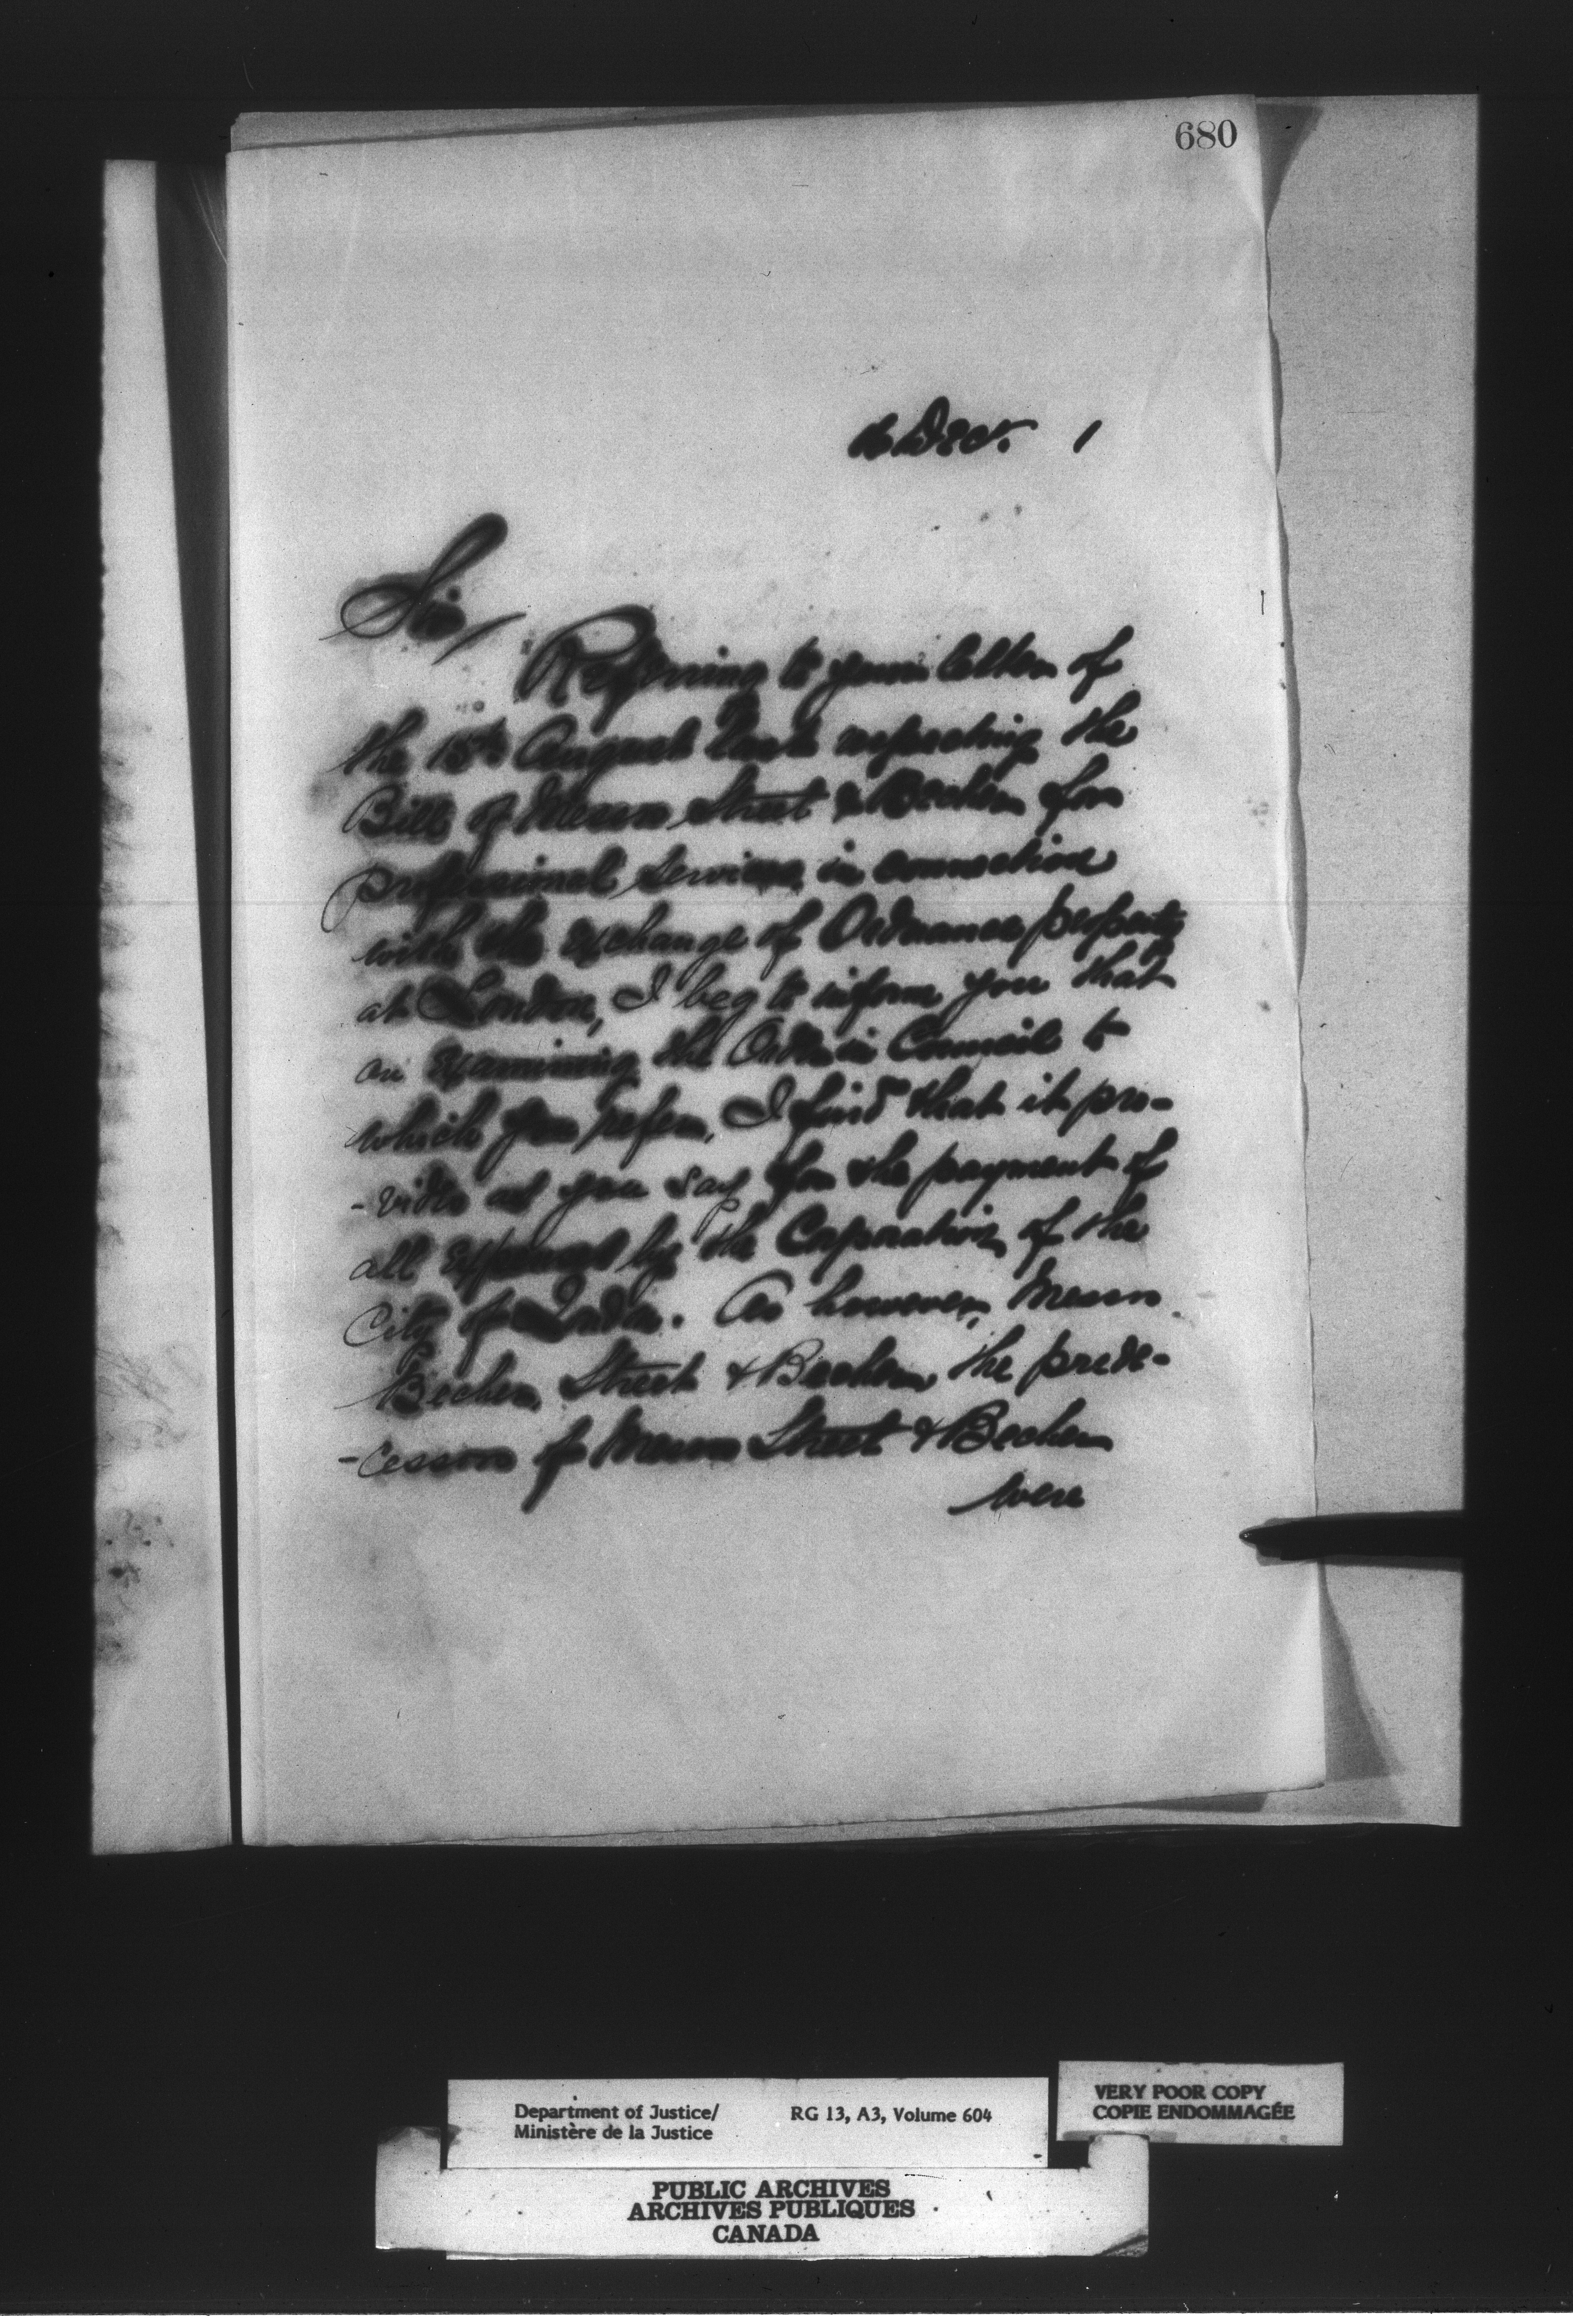 680
Decr. 1
Sir,
Referring to your letter of
the 15th August last respecting the
Bill of Messrs Street & Becher for
professional services in connection
with the exchange of Ordnance property
at London, I beg to inform you that
on examining the Order in Council to
which you refer, I find that it pro-
-vides as you say for the payment of
all expenses by the Corporation of the
City of London. As however, Messrs
Becher, Street & Becher the prede-
-cessors of Messrs Street & Becher
were
Department of Justice/
Ministère de la Justice
RG 13, A3, Volume 604
VERY POOR COPY
COPIE ENDOMMAGÉE
PUBLIC ARCHIVES
ARCHIVES PUBLIQUES
CANADA